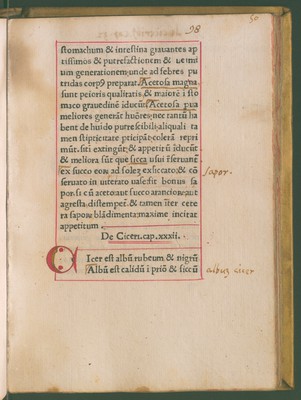 98
50
stomachum & intestina grauantes ap
tissimos & putrefactionem & uermi
um generationem: unde ad febres pu
tridas corpꝰ preparat. Acetosa magna
sunt peioris qualitatis & maiorē ī sto
maco grauedinē īducūt. Acetosa pua
meliores generāt huōres: nec tantū ha
bent de huido putrescibili: aliquali ta
men stipticitate pticipāt: colerā repri
mūt. siti extingūt: & appetitū īducūt
& meliora sūt que sicca usui īseruanē
ex succo eoꝝ ad solez exsiccato: & cō
seruato in uiterato uase: fit bonus sa
por. si cū aceto aut succo arancioꝝ aut
agresta. distempeē. & tamen īter cete
ra sapoꝝ blādimenta: maxime incitat
appetitum.
sapor.
De Cicere. cap. xxxii.
Cicer est albū rubeum & nigrū
Albū est calidū ī priō & siccū
albuz cicer